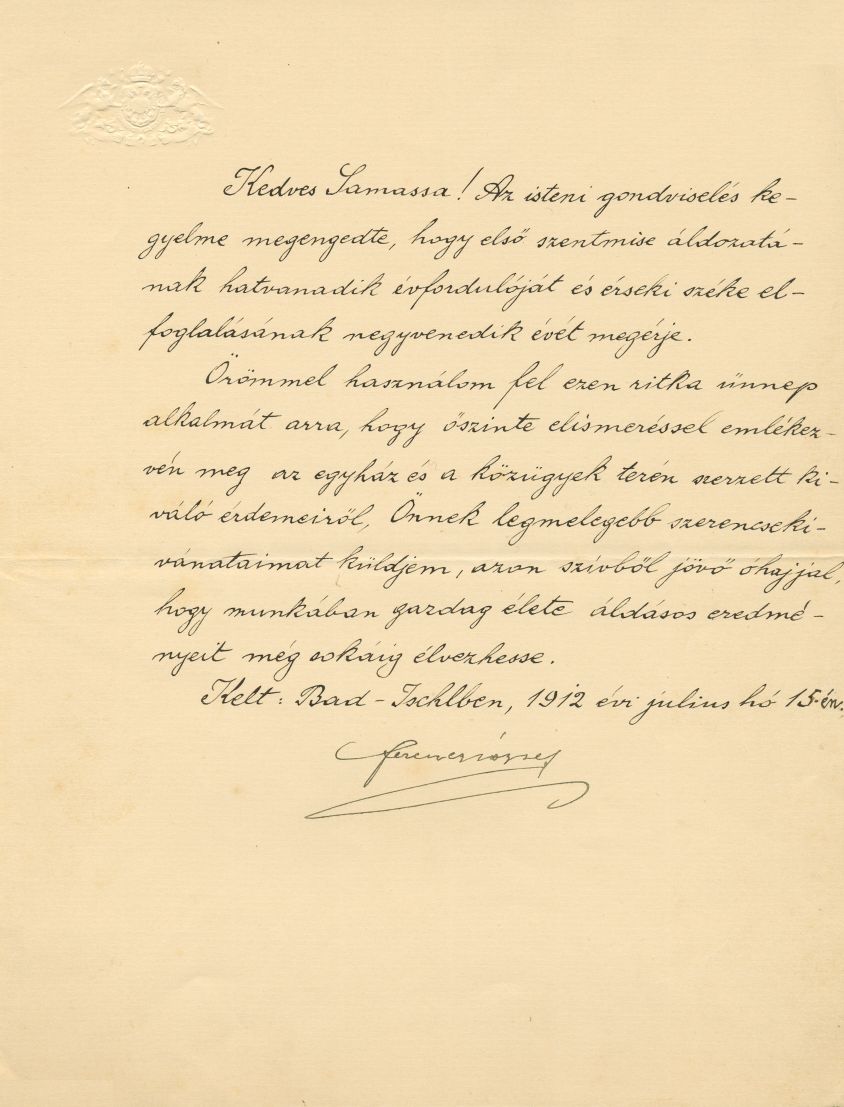 Kedves Samassa! Az isteni gondviselés ke-
gyelme megengedte, hogy első szentmise áldozatá-
nak hatvanadik évfordulóját és érseki széke el-
foglalásának negyvenedik évét megérje.
Örömmel használom fel ezen ritka ünnep
alkalmát arra, hogy őszinte elismeréssel emlékez-
vén meg az egyház és a közügyek terén szerzett ki-
váló érdemeiről, Önnek legmelegebb szerencseki-
vánataimat küldjem, azon szívből jövő óhajjal,
hogy munkában gazdag élete áldásos eredmé-
nyeit még sokáig élvezhesse.
Kelt: Bad-Ischlben, 1912 évi július hó 15-én.
Ferencz József